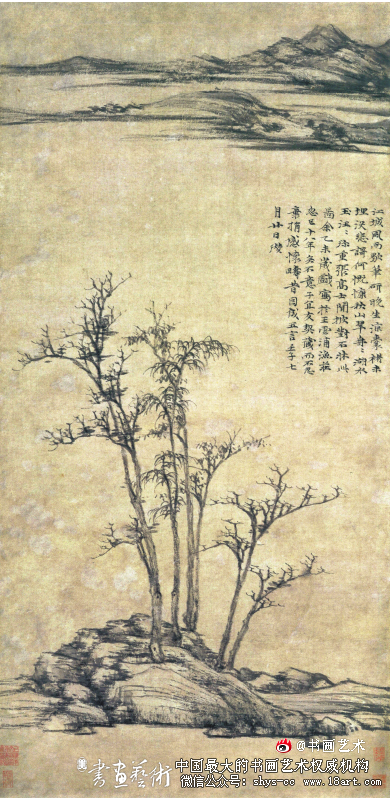 江城風雨歇筆研晚生涼囊楮未
埋没悲謌何慨慷秋山翠冉冉湖水
玉汪汪珍重張高士閒披對石牀此
圖余乙未歲戲寫於王雲浦漁莊
忽已十八年矣不意子宜友契藏而不忍
棄捐感懷疇昔因成五言壬子七
月廿日瓚
@书画艺术
書畫藝術
中国最大的书画艺术权威机构
微信公众号:shys-cc www.18art.com